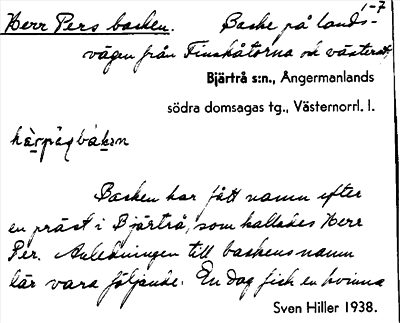 1-7
Herr Pers backen. Backe på lands-
vägen från Finskåtorna och västerut,
Bjärtrå s:n., Ångermanlands
södra domsagas tg., Västernorrl. l.
hærpäsbakan
Backen har fått namn efter
en präst i Bjärtrå, som kallades Herr
Per. Anledningen till backens namn
lär vara följande: En dag fick en kvinna
Sven Hiller 1938.